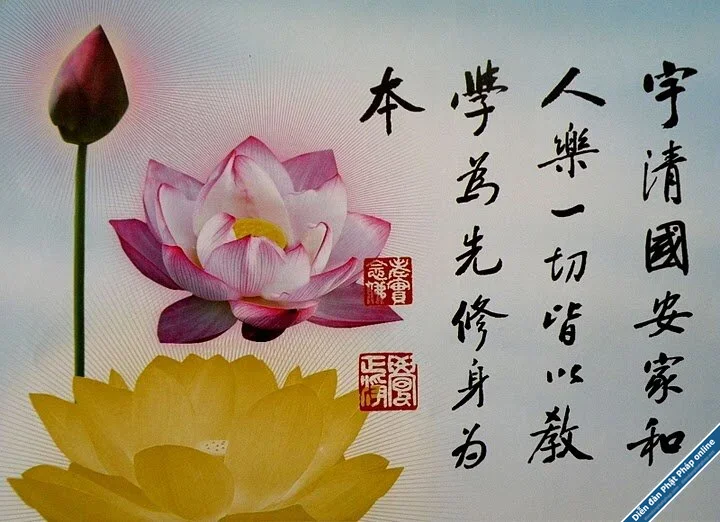 宇清國安家和
人樂一切皆以教
學為先修身為
本
老實念佛
覺正淨
Diễn đàn Phật Pháp online